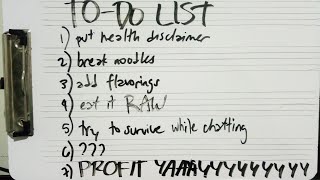 TO-DO LIST
1) put health disclaimer
2) break noodles
3) add flavorings
4) eat it RAW
5) try to survive while chatting
6) ???
7) PROFIT YAAAYYYYYYYYYY